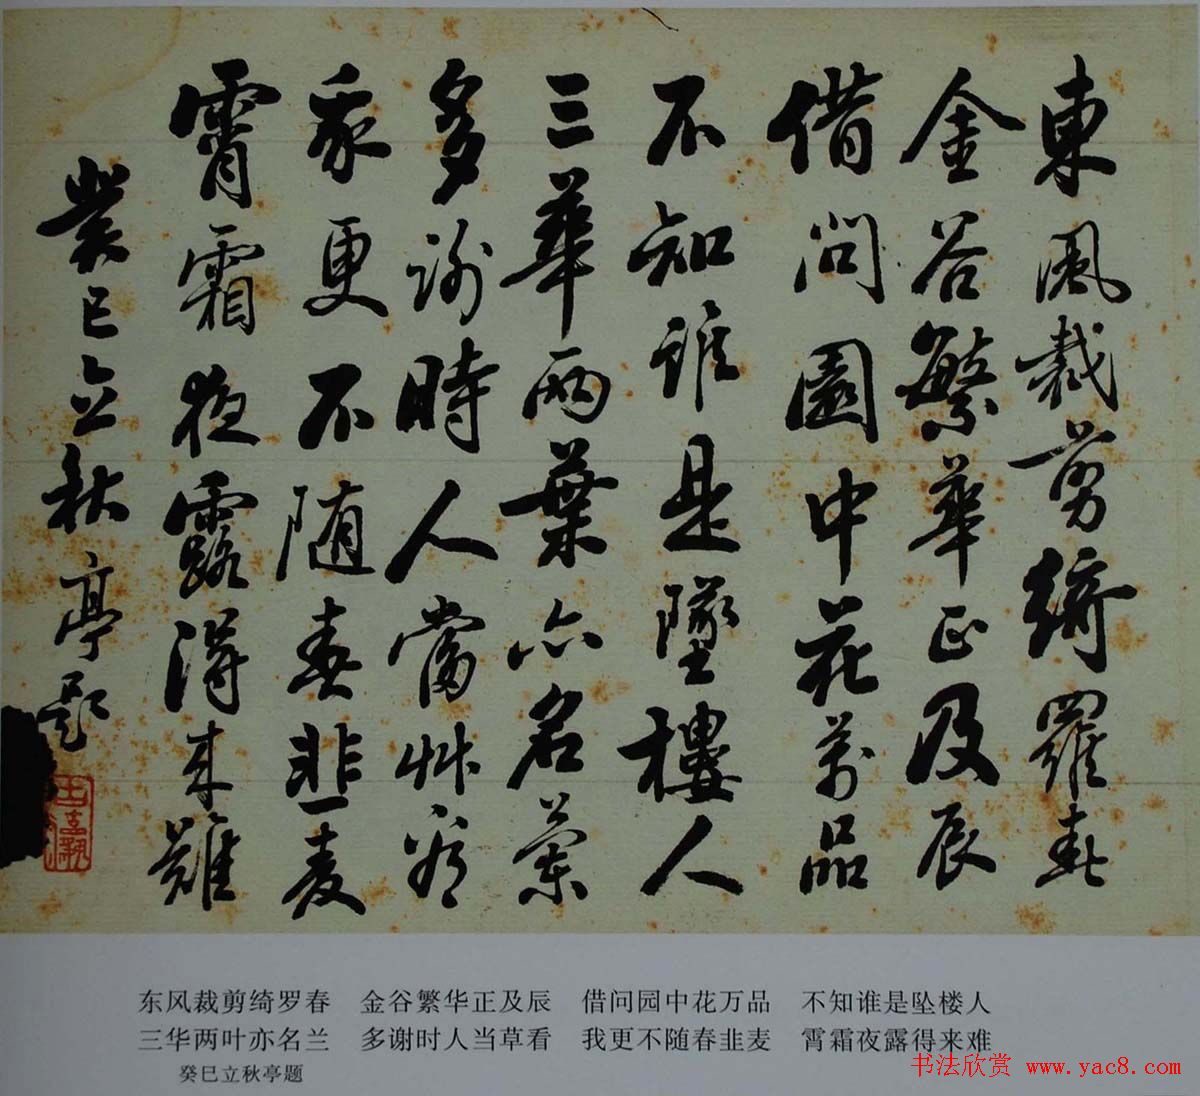 東風裁剪綺羅春
金谷繁華正及辰
借問園中花萬品
不知誰是墜樓人
三華兩葉亦名蘭
多謝時人當艸看
我更不随春韭麦
霄霜夜露得来難
癸巳立秋亭题
东风裁剪绮罗春　金谷繁华正及辰　借问园中花万品　不知谁是坠楼人
三华两叶亦名兰　多谢时人当草看　我更不随春韭麦　霄霜夜露得来难
癸巳立秋亭题
书法欣赏
www.yac8.com